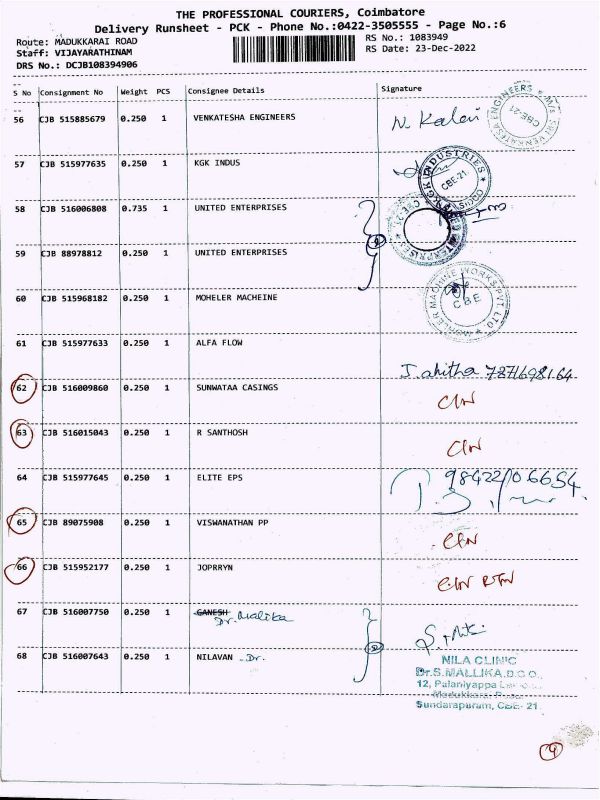 THE PROFESSIONAL COURIERS, Coimbatore
Delivery Runsheet - PCK - Phone No.:0422-3505555 - Page No.:6
Route: MADUKKARAI ROAD
RS No.: 1083949
Staff: VIJAYARATHINAM
RS Date: 23-Dec-2022
DRS No.: DCJB108394906
S No Consignment No Weight PCS Consignee Details Signature
56 CJB 515885679 0.250 1 VENKATESHA ENGINEERS N. Kalai
CBE-21
57 CJB 515977635 0.250 1 KGK INDUS
CBE-21
58 CJB 516006808 0.735 1 UNITED ENTERPRISES
59 CJB 88978812 0.250 1 UNITED ENTERPRISES
60 CJB 515968182 0.250 1 MOHELER MACHEINE
CBE
61 CJB 515977633 0.250 1 ALFA FLOW
62 CJB 516009860 0.250 1 SUNWATAA CASINGS
63 CJB 516015043 0.250 1 R SANTHOSH
64 CJB 515977645 0.250 1 ELITE EPS
65 CJB 89075908 0.250 1 VISWANATHAN PP
66 CJB 515952177 0.250 1 JOPRRYN
67 CJB 516007750 0.250 1 GANESH
Dr. Malika
68 CJB 516007643 0.250 1 NILAVAN - Dr.
NILA CLINIC
Dr.S.MALLIKA,D.C.O.,
12, Palaniyappa
Sundarapuram, CBE- 21
9